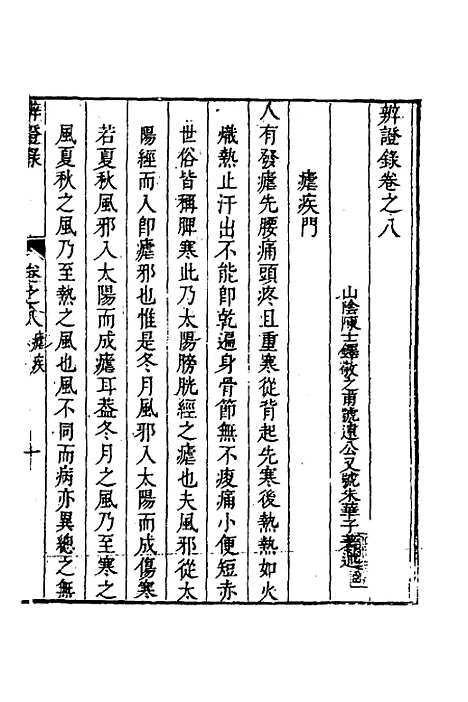 辨證錄卷之八
山陰陳士鐸敬之甫號遠公又號朱華子著述
瘧疾門
人有發瘧先腰痛頭疼且重寒從背起先寒後熱熱如火
熾熱止汗出不能即乾遍身骨節無不痠痛小便短赤
世俗皆稱脾寒此乃太陽膀胱經之瘧也夫風邪從太
陽經而入即瘧邪也惟是冬月風邪入太陽而成傷寒
若夏秋風邪入太陽而成瘧耳蓋冬月之風乃至寒之
風夏秋之風乃至熱之風也風不同而病亦異總之無
辨證錄
卷之八
瘧疾
十